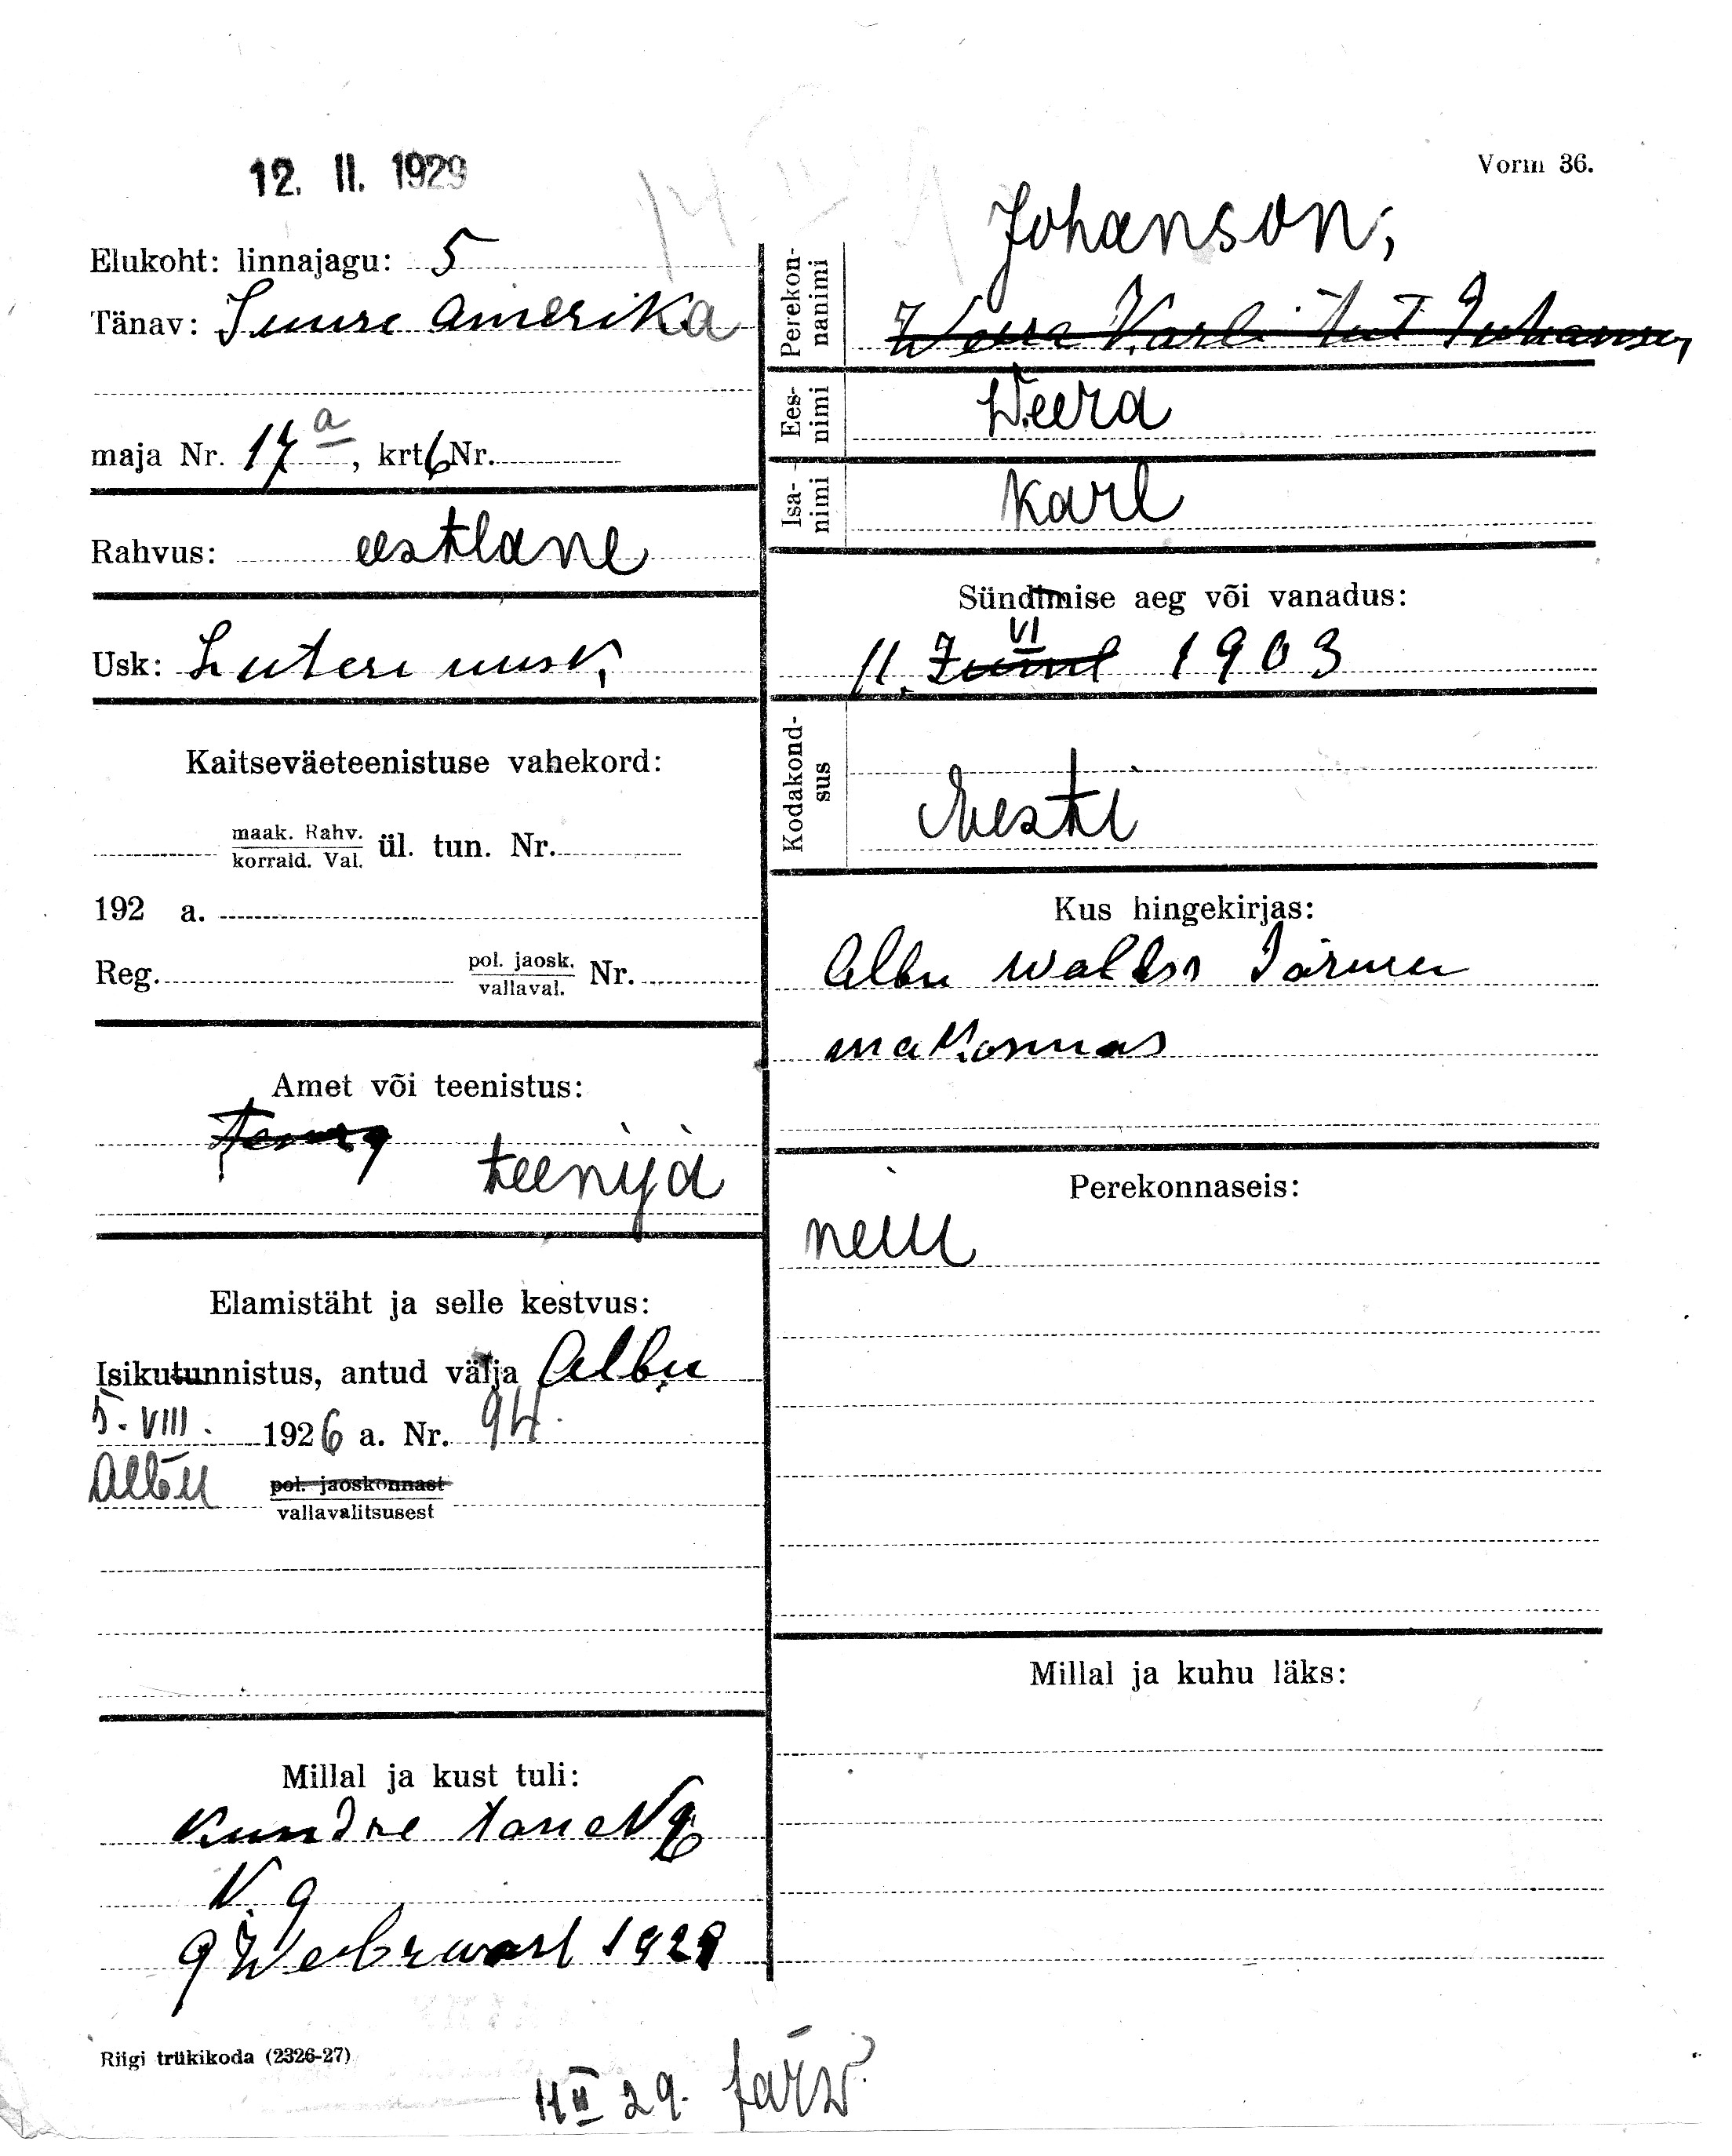 12. II. 1929
Vorm 36.
Elukoht: linnajagu: 5
Tänav: Suure Amerika
maja Nr. 17 a, krt 6 Nr.
Rahvus: eestlane
Usk: Luteri uusk
Kaitseväeteenistuse vahekord:
maak. Rahv.
korrald. Val. ül. tun. Nr.
192 a.
Reg. pol. jaosk. Nr.
vallaval.
Amet või teenistus:
teenija
Elamistäht ja selle kestvus:
Isikutunnistus, antud välja Albu
5. VIII. 1926 a. Nr. 94.
Albu pol. jaoskonnast
vallavalitsusest
Millal ja kust tuli:
Kundre
N. 9
9 Webrwarl 1929
Riigi trükikoda (2326-27)
Johanson,
Perekon-
nanimi Weera Karli tüt Johanson
Ees-
nimi Weera
Isa-
nimi Karl
Sündimise aeg või vanadus:
VI
11. Juunil 1903
Kodakond-
sus Eesti
Kus hingekirjas:
Albu wallas Järwa
makonnas
Perekonnaseis:
neiu
Millal ja kuhu läks:
II 29.